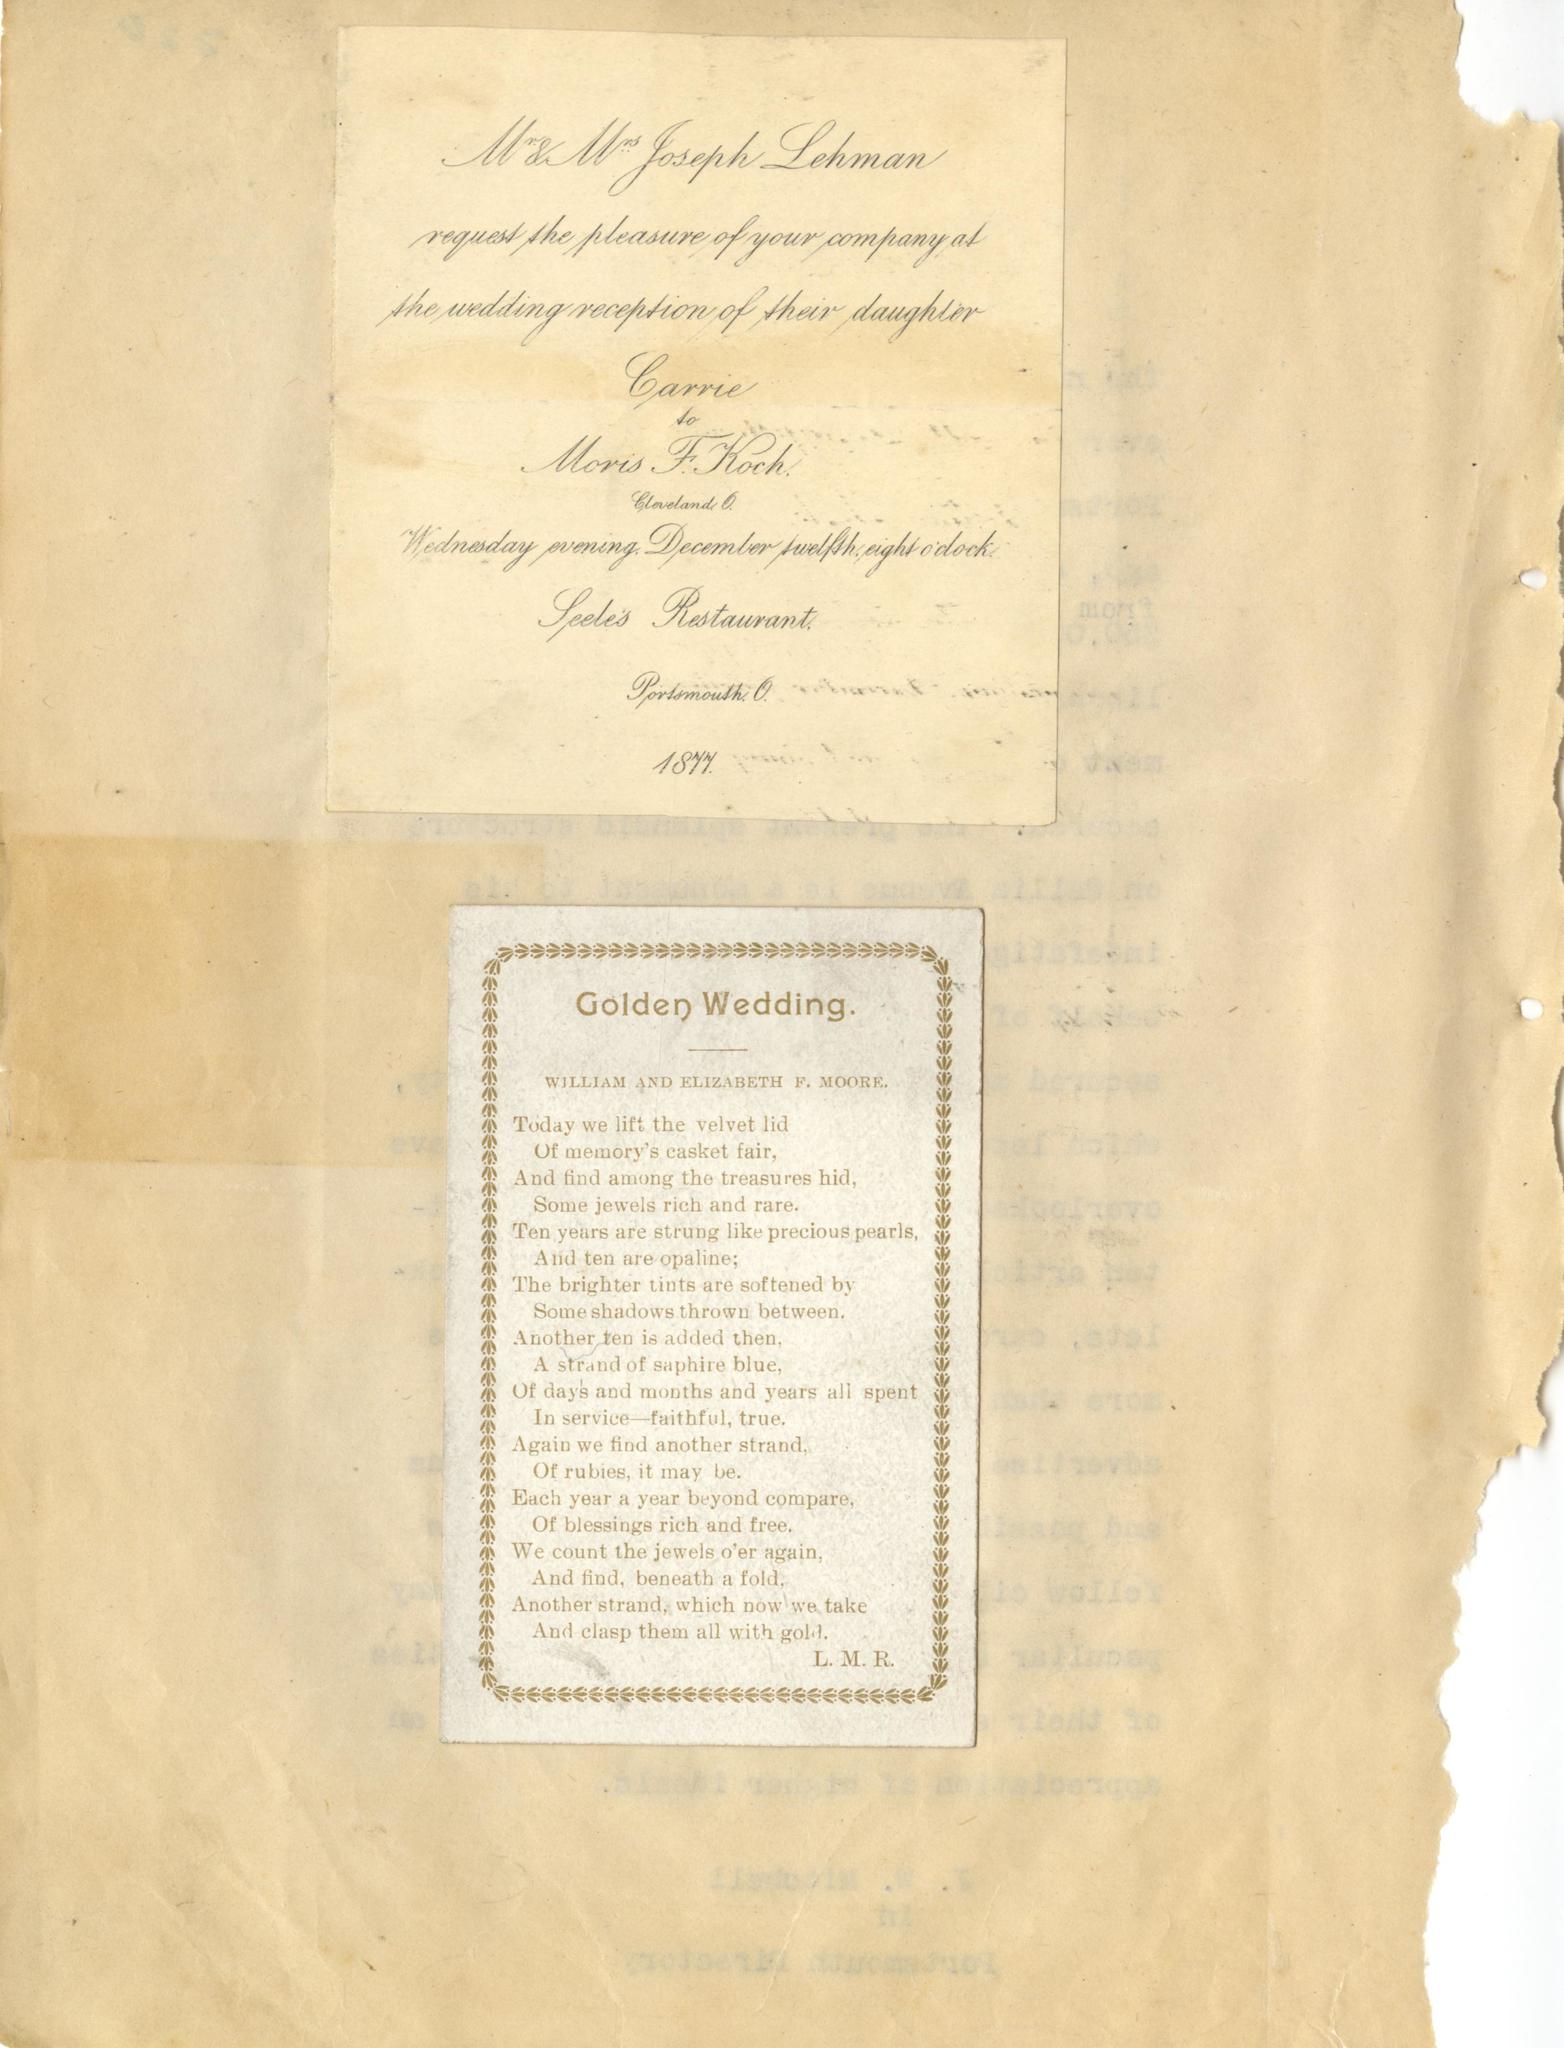 Mr & Mrs Joseph Lehman
request the pleasure of your company at
the wedding reception of their daughter
Carrie
to
Moris F. Koch.
Cleveland, O.
Wednesday evening, December twelfth, eight o'clock.
Seele's Restaurant.
Portsmouth, O.
1877.
Golden Wedding.
WILLIAM AND ELIZABETH F. MOORE.
Today we lift the velvet lid
Of memory's casket fair,
And find among the treasures hid,
Some jewels rich and rare.
Ten years are strung like precious pearls,
And ten are opaline;
The brighter tints are softened by
Some shadows thrown between.
Another ten is added then,
A strand of saphire blue,
Of days and months and years all spent
In service—faithful, true.
Again we find another strand,
Of rubies, it may be.
Each year a year beyond compare,
Of blessings rich and free.
We count the jewels o'er again,
And find, beneath a fold,
Another strand, which now we take
And clasp them all with gold.
L. M. R.